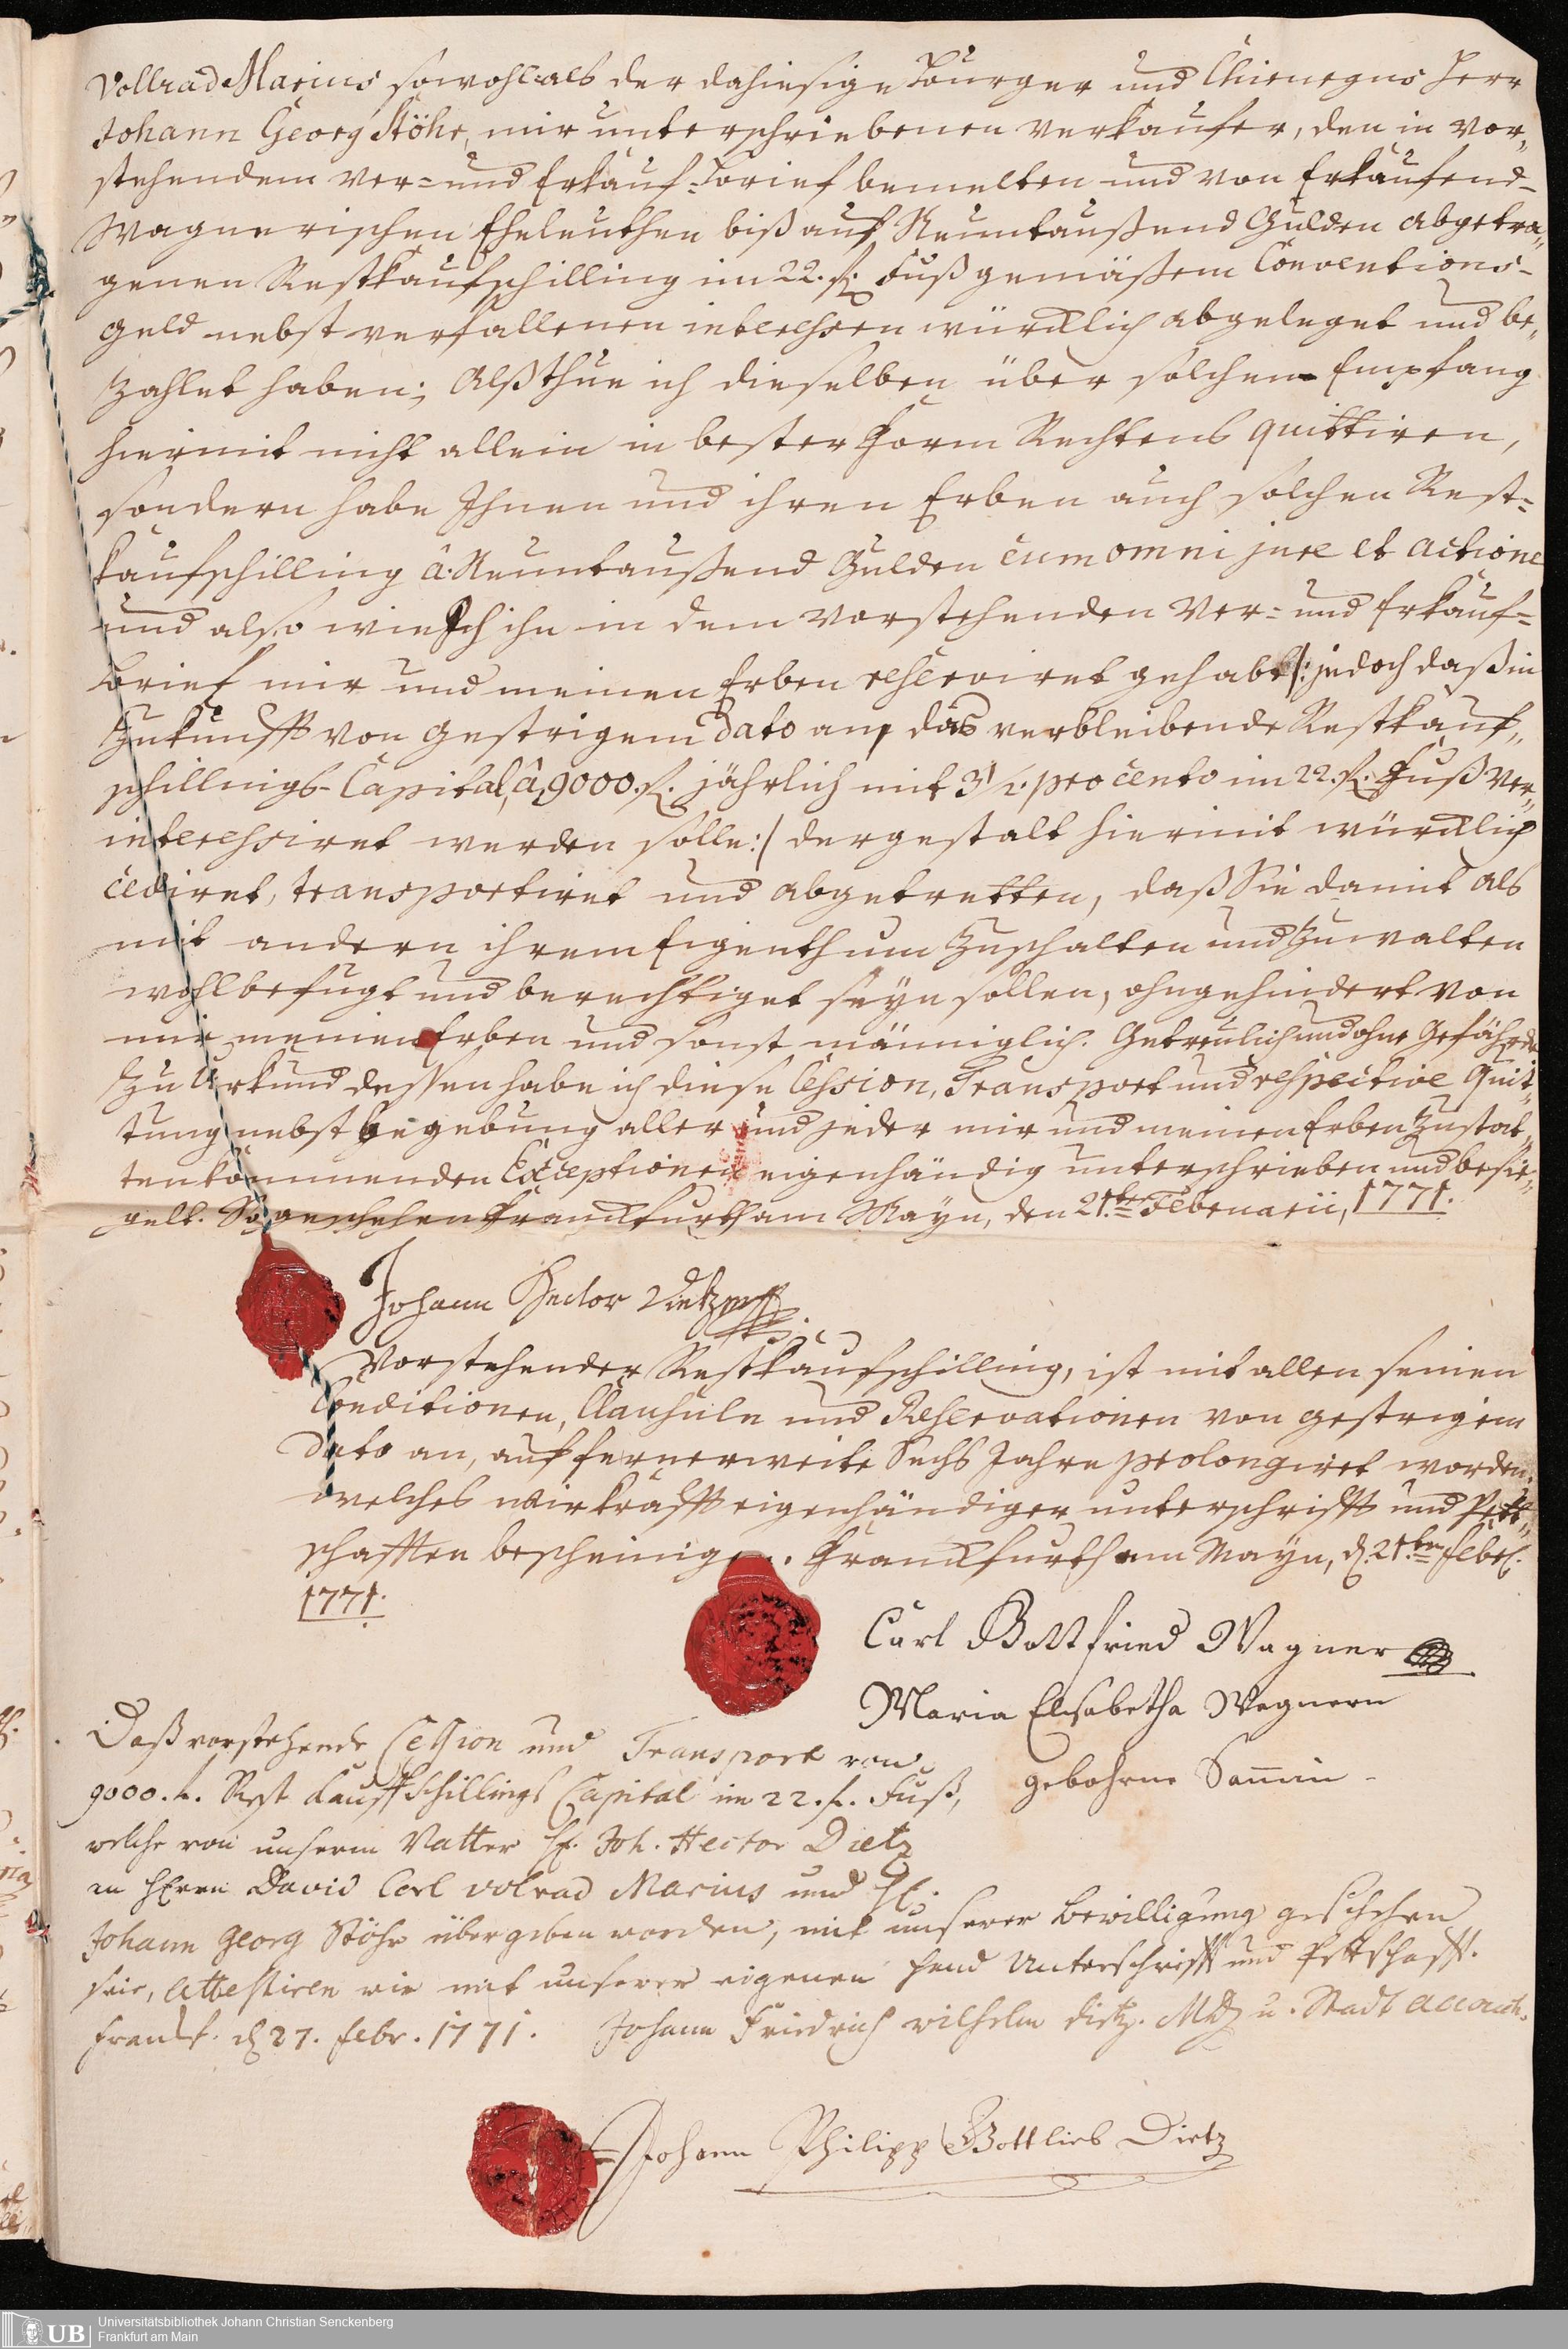 Vollrad Marius sowohl als der dahiesige Bürger und Chirurgus Herr
Johann Georg Stöhr, mir unterschriebenen Verkaufer, den in vor„
stehendem Ver= und Erkauf=Brief bemelten und von Erkaufend-
Wagnerischen Eheleuthen biß auf Neuntaußend Gulden abgetra„
genen Restkaufschilling im 22. fl. Fuß gemäßem Conventions-
Geld nebst verfallenen interessen würcklich abgeleget und be„
zahlet haben; Alß thue ich dieselben über solchen Empfang
hiermit nicht allein in bester Form Rechtens quittiren,
sondern habe Ihnen und ihren Erben auch solchen Rest=
kaufschilling â Neuntaußend Gulden cum omni jure et actione
und also wie Ich ihn in dem vorstehenden Ver= und Erkauf=
Brief mir und meinen Erben reserviret gehabt /: jedoch daß in
Zukunfft von gestrigem Dato an, das verbleibende Restkauf„
schillings-Capital, â 9000. fl. jährlich mit 3 1/2. pro cento im 22. fl. Fuß ver„
interessiret werden solle :/ dergestalt hiermit würcklich
cediret, transportiret und abgetretten, daß Sie damit als
mit andern ihrem Eigenthum zuschalten und zuwalten
wohlbefugt und berechtiget seyn sollen, ohngehindert von
mir, meinen Erben und sonst männiglich. Getreulich und ohne Gefährde
Zu Urkund dessen habe ich diese Cession, Transport und respective Quit„
tung nebst Begebung aller und jeder mir und meinen Erben zustat„
ten kommenden Exceptionen eigenhändig unterschrieben und besie„
gelt. So geschehen Franckfurth am Mayn, den 21.ten Februarii, 1771.
Johann Hector Dietz
Vorstehender Restkaufschilling, ist mit allen seinen
Conditionen, Clausuln und Reservationen von gestrigem
dato an, auf fernerweite Sechs Jahre prolongiret worden.
welches wir krafft eigenhändiger unterschrifft und Pett„
schafften bescheinigen. Franckfurth am Mayn, d. 21.ten Febr.
1771.
Carl Gottfried Wagner
Maria Elisabetha Wagnern
gebohrne
Daß vorstehende Cession und Transport von
9000. fl. Rest Kauffschillings Capital im 22. fl. Fuß,
welche von unserm Vatter H. Joh. Hector Dietz
an Herrn David Carl Volrad Marius und H.
Johann Georg Stöhr übergeben worden, mit unserer Bewilligung geschehen
seie, attestiren wir mit unserer eigenen Hand Unterschrifft und Pettschafft.
Franckf. d 27. Febr. 1771. Johann Friedrich Wilhelm Dietz. MD u. Stadt accouch.
Johann Philipp Gottlieb Dietz
UB
Universitätsbibliothek Johann Christian Senckenberg
Frankfurt am Main